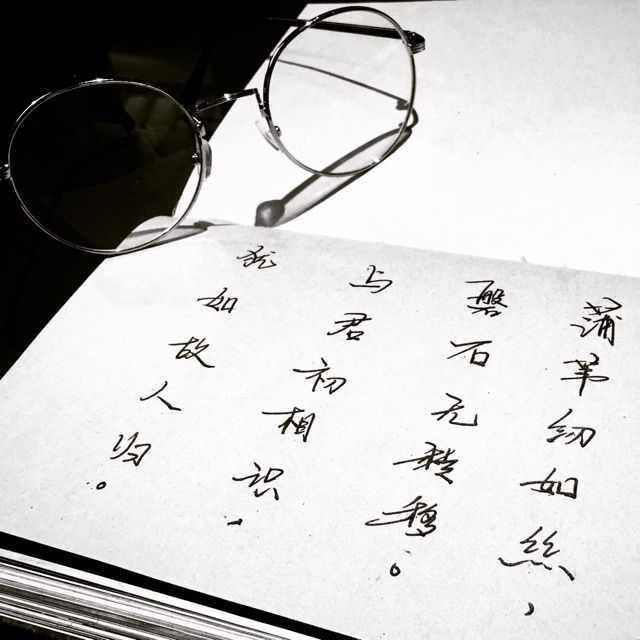 蒲苇纫如丝，
磐石无转移。
与君初相识，
犹如故人归。